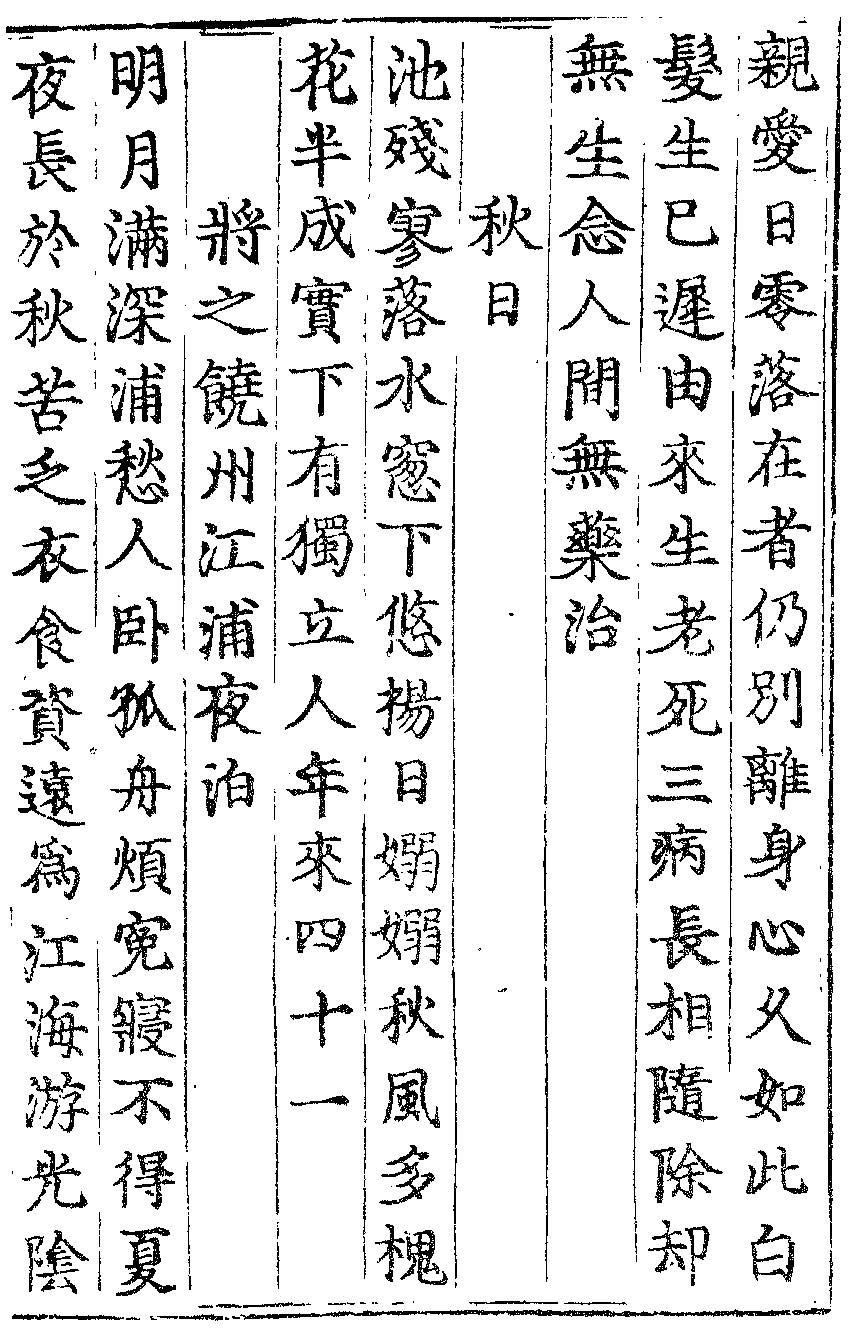 親愛日零落在者仍別離身心乆如此白
髮生已遲由來生老死三病長相隨除却
無生念人間無藥治
秋日
池殘寥落水窓下悠揚日嫋嫋秋風多槐
花半成實下有獨立人年來四十一
將之饒州江浦夜泊
明月滿深浦愁人卧孤舟煩寃寢不得夏
夜長於秋苦乏衣食資遠爲江海游光陰